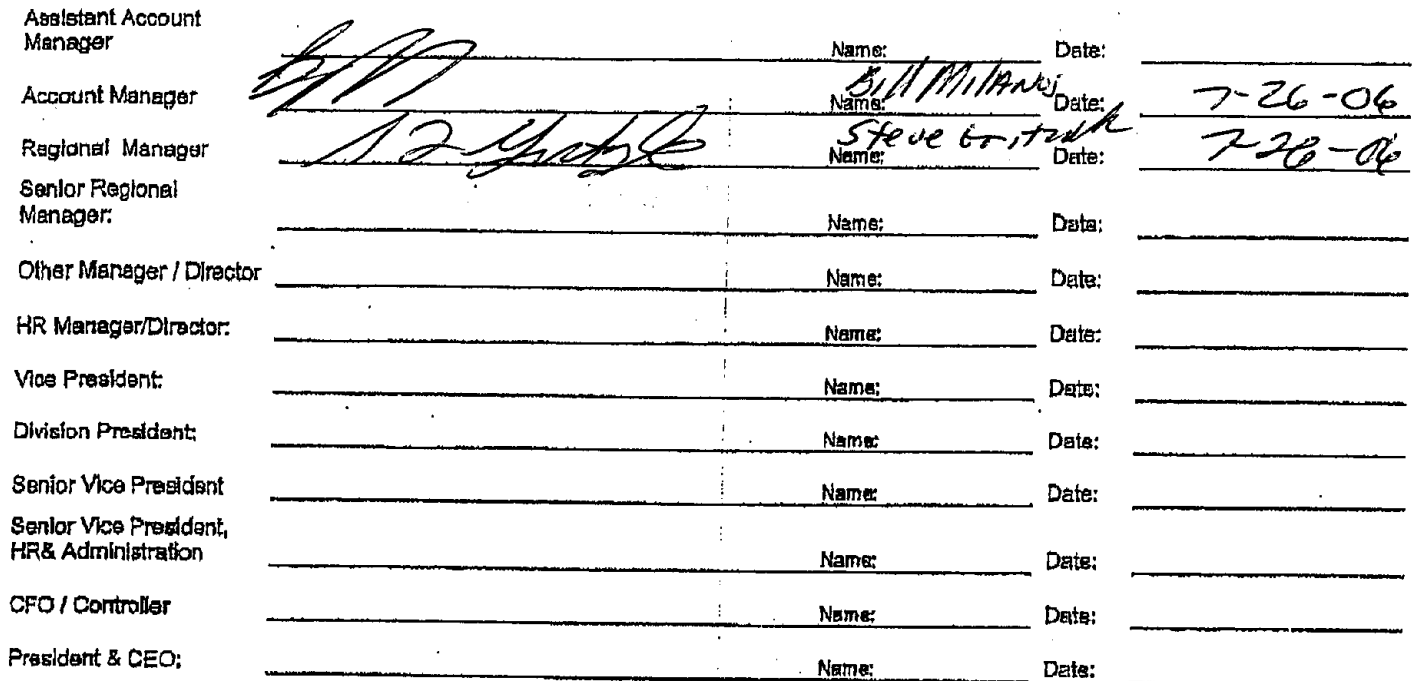 Assistant Account
Manager Name: Date:
Account Manager Name: Bill Milanoj Date: 7-26-06
Regional Manager Name: Steve Date: 7-26-06
Senior Regional
Manager: Name: Date:
Other Manager / Director Name: Date:
HR Manager/Director: Name: Date:
Vice President: Name: Date:
Division President: Name: Date:
Senior Vice President Name: Date:
Senior Vice President,
HR& Administration Name: Date:
CFO / Controller Name: Date:
President & CEO: Name: Date: